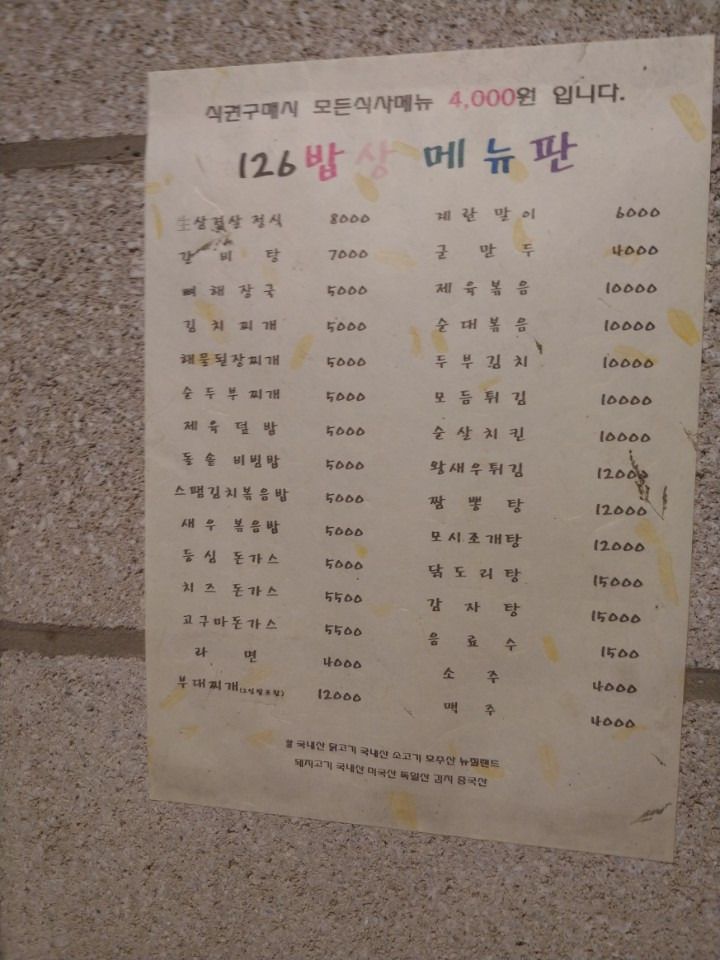 식권구매시 모든식사메뉴 4,000원 입니다.
126밥상 메뉴판
生삼겹살 정식 8000
갈비탕 7000
뼈해장국 5000
김치찌개 5000
해물된장찌개 5000
순두부찌개 5000
제육덮밥 5000
돌솥 비빔밥 5000
스팸김치볶음밥 5000
새우 볶음밥 5000
등심 돈가스 5000
치즈 돈가스 5500
고구마돈가스 5500
라면 4000
부대찌개(2인밥포함) 12000
계란말이 6000
군만두 4000
제육볶음 10000
순대볶음 10000
두부김치 10000
모듬튀김 10000
순살치킨 10000
왕새우튀김 12000
짬뽕탕 12000
모시조개탕 12000
닭도리탕 15000
감자탕 15000
음료수 1500
소주 4000
맥주 4000
쌀 국내산 닭고기 국내산 소고기 호주산 뉴질랜드
돼지고기 국내산 미국산 독일산 김치 중국산